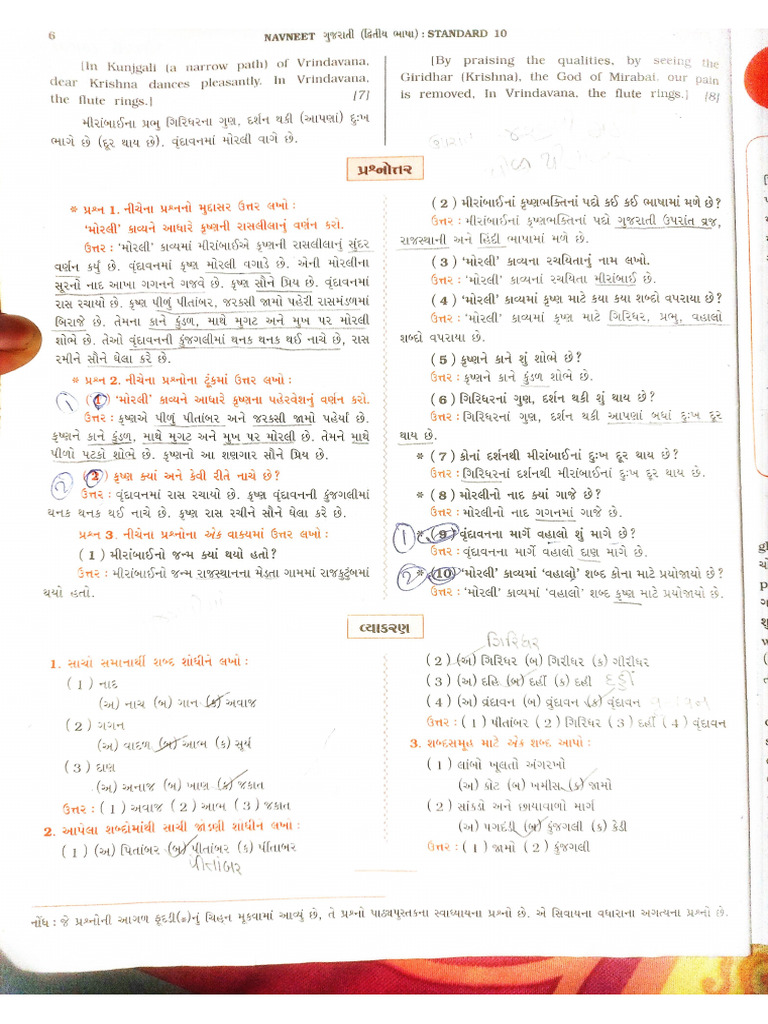 6
NAVNEET ગુજરાતી (દ્વિતીય ભાષા) : STANDARD 10
[In Kunjgali (a narrow path) of Vrindavana,
dear Krishna dances pleasantly. In Vrindavana,
the flute rings.] [7]
મીરાંબાઈના પ્રભુ ગિરિધરના ગુણ, દર્શન થકી (આપણાં) દુઃખ
ભાગે છે (દૂર થાય છે). વૃંદાવનમાં મોરલી વાગે છે.
[By praising the qualities, by seeing the
Giridhar (Krishna), the God of Mirabai, our pain
is removed, In Vrindavana, the flute rings.] [8]
પ્રશ્નોત્તર
* પ્રશ્ન 1. નીચેના પ્રશ્નનો મુદ્દાસર ઉત્તર લખો :
'મોરલી' કાવ્યને આધારે કૃષ્ણની રાસલીલાનું વર્ણન કરો.
ઉત્તર : 'મોરલી' કાવ્યમાં મીરાંબાઈએ કૃષ્ણની રાસલીલાનું સુંદર
વર્ણન કર્યું છે. વૃંદાવનમાં કૃષ્ણ મોરલી વગાડે છે. એની મોરલીના
સૂરનો નાદ આખા ગગનને ગજવે છે. કૃષ્ણ સૌને પ્રિય છે. વૃંદાવનમાં
રાસ રચાયો છે. કૃષ્ણ પીળું પીતાંબર, જરકસી જામો પહેરી રાસમંડળમાં
બિરાજે છે. તેમના કાને કુંડળ, માથે મુગટ અને મુખ પર મોરલી
શોભે છે. તેઓ વૃંદાવનની કુંજગલીમાં થનક થનક થઈ નાચે છે, રાસ
રમીને સૌને ઘેલા કરે છે.
* પ્રશ્ન 2. નીચેના પ્રશ્નોના ટૂંકમાં ઉત્તર લખો :
1 (1) 'મોરલી' કાવ્યને આધારે કૃષ્ણના પહેરવેશનું વર્ણન કરો.
ઉત્તર : કૃષ્ણએ પીળું પીતાંબર અને જરકસી જામો પહેર્યાં છે.
કૃષ્ણને કાને કુંડળ, માથે મુગટ અને મુખ પર મોરલી છે. તેમને માથે
પીળો પટકો શોભે છે. કૃષ્ણનો આ શણગાર સૌને પ્રિય છે.
2 (2) કૃષ્ણ ક્યાં અને કેવી રીતે નાચે છે?
ઉત્તર : વૃંદાવનમાં રાસ રચાયો છે. કૃષ્ણ વૃંદાવનની કુંજગલીમાં
થનક થનક થઈ નાચે છે. કૃષ્ણ રાસ રચીને સૌને ઘેલા કરે છે.
પ્રશ્ન 3. નીચેના પ્રશ્નોના એક વાક્યમાં ઉત્તર લખો :
(1) મીરાંબાઈનો જન્મ ક્યાં થયો હતો?
ઉત્તર : મીરાંબાઈનો જન્મ રાજસ્થાનના મેડતા ગામમાં રાજકુટુંબમાં
થયો હતો.
(2) મીરાંબાઈનાં કૃષ્ણભક્તિનાં પદો કઈ કઈ ભાષામાં મળે છે?
ઉત્તર : મીરાંબાઈનાં કૃષ્ણભક્તિનાં પદો ગુજરાતી ઉપરાંત વ્રજ,
રાજસ્થાની અને હિંદી ભાષામાં મળે છે.
(3) 'મોરલી' કાવ્યના રચયિતાનું નામ લખો.
ઉત્તર : 'મોરલી' કાવ્યનાં રચયિતા મીરાંબાઈ છે.
(4) 'મોરલી' કાવ્યમાં કૃષ્ણ માટે કયા કયા શબ્દો વપરાયા છે?
ઉત્તર : 'મોરલી' કાવ્યમાં કૃષ્ણ માટે ગિરિધર, પ્રભુ, વહાલો
શબ્દો વપરાયા છે.
(5) કૃષ્ણને કાને શું શોભે છે?
ઉત્તર : કૃષ્ણને કાને કુંડળ શોભે છે.
(6) ગિરિધરનાં ગુણ, દર્શન થકી શું થાય છે?
ઉત્તર : ગિરિધરનાં ગુણ, દર્શન થકી આપણાં બધાં દુઃખ દૂર
થાય છે.
* (7) કોનાં દર્શનથી મીરાંબાઈનાં દુઃખ દૂર થાય છે?
ઉત્તર : ગિરિધરનાં દર્શનથી મીરાંબાઈનાં દુઃખ દૂર થાય છે.
* (8) મોરલીનો નાદ ક્યાં ગાજે છે?
ઉત્તર : મોરલીનો નાદ ગગનમાં ગાજે છે.
1 * (9) વૃંદાવનના માર્ગે વહાલો શું માગે છે?
ઉત્તર : વૃંદાવનના માર્ગે વહાલો દાણ માગે છે.
2 * (10) 'મોરલી' કાવ્યમાં 'વહાલો' શબ્દ કોના માટે પ્રયોજાયો છે?
ઉત્તર : 'મોરલી' કાવ્યમાં 'વહાલો' શબ્દ કૃષ્ણ માટે પ્રયોજાયો છે.
વ્યાકરણ
1. સાચો સમાનાર્થી શબ્દ શોધીને લખો :
(1) નાદ
(અ) નાચ (બ) ગાન (ક) અવાજ
(2) ગગન
(અ) વાદળ (બ) આભ (ક) સૂર્ય
(3) દાણ
(અ) અનાજ (બ) ખાણ (ક) જકાત
ઉત્તર : (1) અવાજ (2) આભ (3) જકાત
2. આપેલા શબ્દોમાંથી સાચી જોડણી શોધીને લખો :
(1) (અ) પિતાંબર (બ) પીતાંબર (ક) પીંતાબર
પીતાંબર
ગિરિધર
(2) (અ) ગિરિધર (બ) ગિરીધર (ક) ગીરીધર
(3) (અ) દહિં (બ) દહીં (ક) દહી દહીં
(4) (અ) વ્રંદાવન (બ) વ્રુંદાવન (ક) વૃંદાવન
ઉત્તર : (1) પીતાંબર (2) ગિરિધર (3) દહીં (4) વૃંદાવન
3. શબ્દસમૂહ માટે એક શબ્દ આપો :
(1) લાંબો ખૂલતો અંગરખો
(અ) કોટ (બ) ખમીસ (ક) જામો
(2) સાંકડો અને છાયાવાળો માર્ગ
(અ) પગદંડી (બ) કુંજગલી (ક) કેડી
ઉત્તર : (1) જામો (2) કુંજગલી
નોંધ : જે પ્રશ્નોની આગળ ફૂદડી(*)નું ચિહ્ન મૂકવામાં આવ્યું છે, તે પ્રશ્નો પાઠ્યપુસ્તકના સ્વાધ્યાયના પ્રશ્નો છે. એ સિવાયના વધારાના અગત્યના પ્રશ્નો છે.